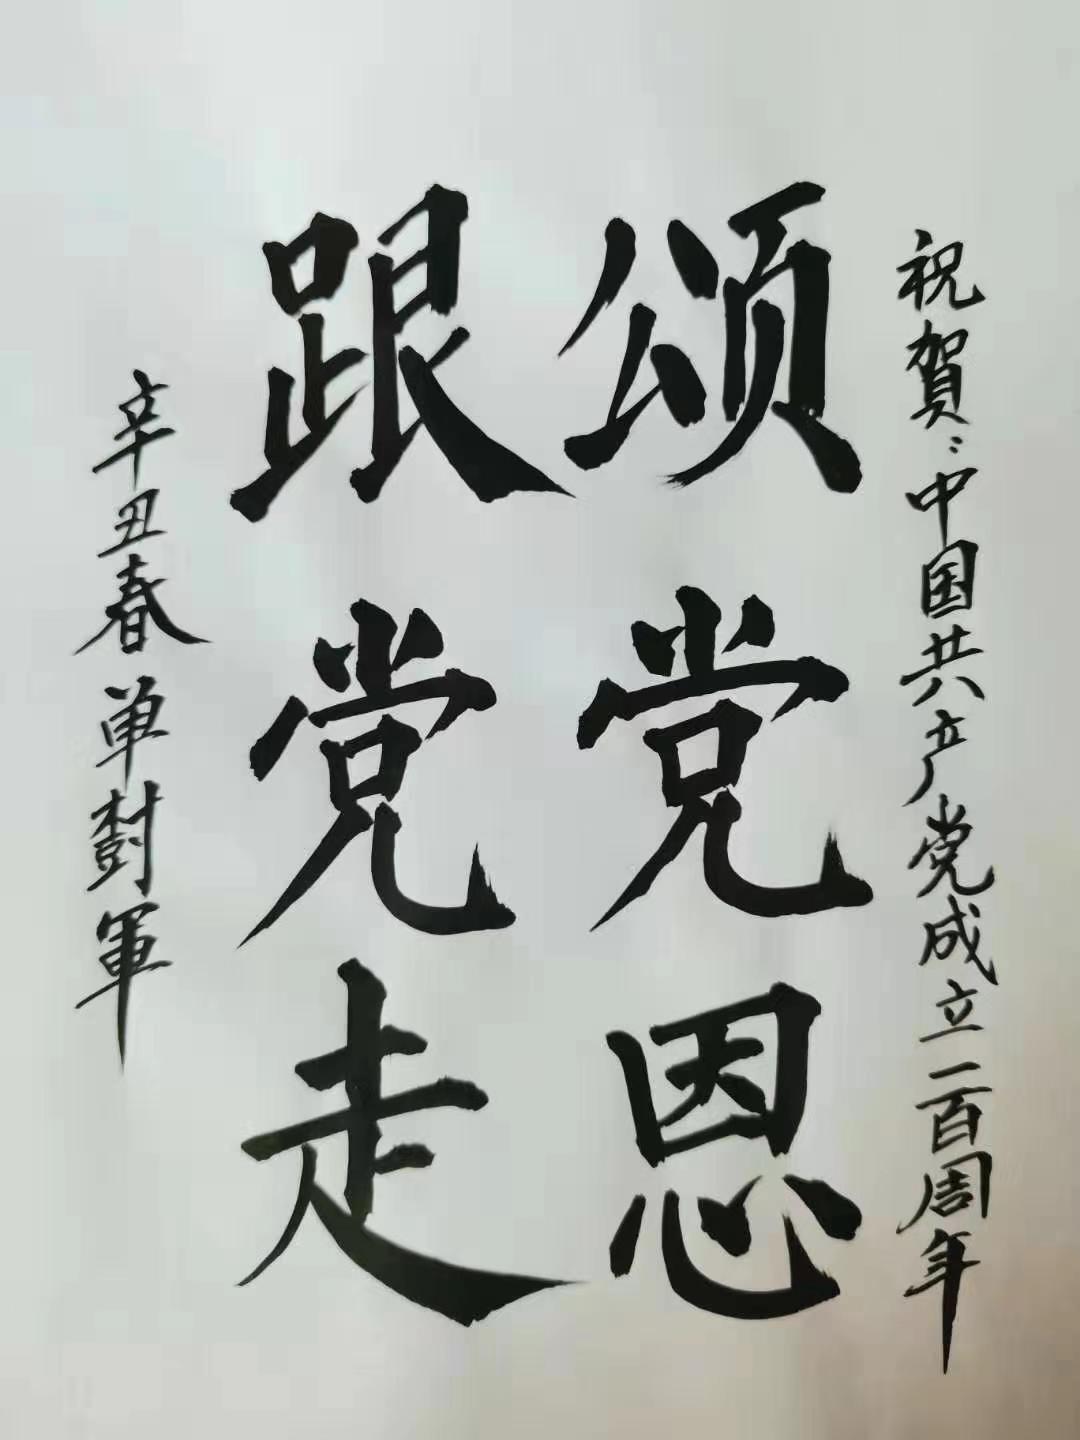 祝賀：中国共产党成立一百周年
颂党恩
跟党走
辛丑春单樹軍